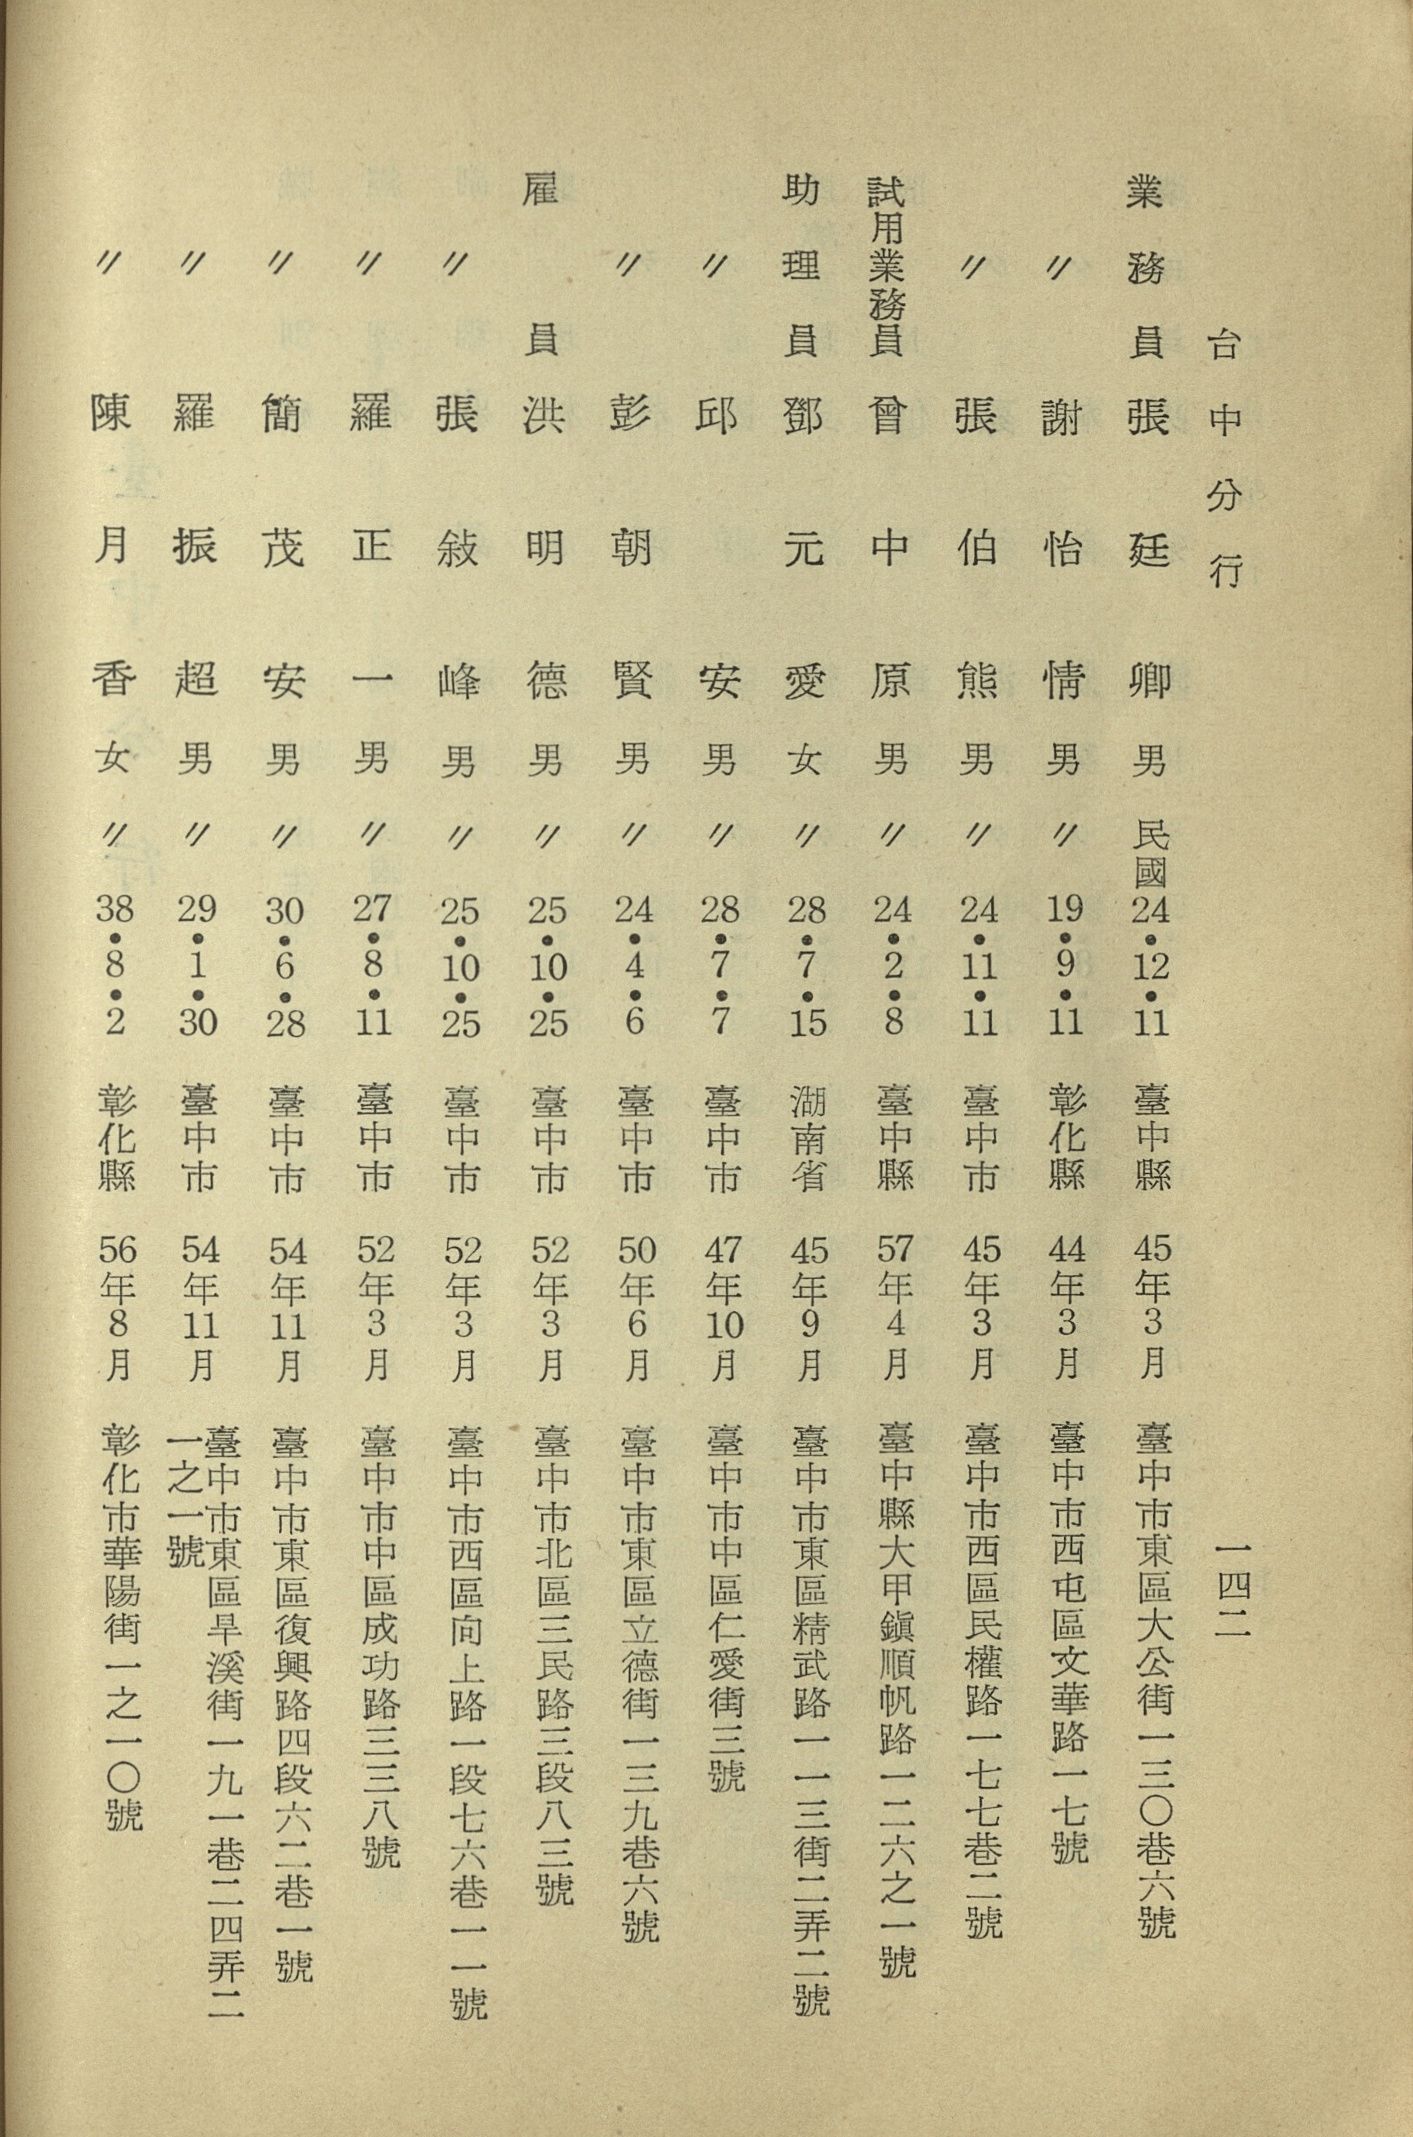 台中分行　一四二
業務員　張廷卿　男　民國24•12•11　臺中縣　45年3月　臺中市東區大公街一三〇巷六號
〃　謝怡情　男　〃　19•9•11　彰化縣　44年3月　臺中市西屯區文華路一七號
〃　張伯熊　男　〃　24•11•11　臺中市　45年3月　臺中市西區民權路一七七巷二號
試用業務員　曾中原　男　〃　24•2•8　臺中縣　57年4月　臺中縣大甲鎭順帆路一二六之一號
助理員　鄧元愛　女　〃　28•7•15　湖南省　45年9月　臺中市東區精武路一一三街二弄二號
〃　邱安　男　〃　28•7•7　臺中市　47年10月　臺中市中區仁愛街三號
〃　彭朝賢　男　〃　24•4•6　臺中市　50年6月　臺中市東區立德街一三九巷六號
雇員　洪明德　男　〃　25•10•25　臺中市　52年3月　臺中市北區三民路三段八三號
〃　張敍峰　男　〃　25•10•25　臺中市　52年3月　臺中市西區向上路一段七六巷一一號
〃　羅正一　男　〃　27•8•11　臺中市　52年3月　臺中市中區成功路三三八號
〃　簡茂安　男　〃　30•6•28　臺中市　54年11月　臺中市東區復興路四段六二巷一號
〃　羅振超　男　〃　29•1•30　臺中市　54年11月　臺中市東區旱溪街一九一巷二四弄二
一之一號
〃　陳月香　女　〃　38•8•2　彰化縣　56年8月　彰化市華陽街一之一〇號